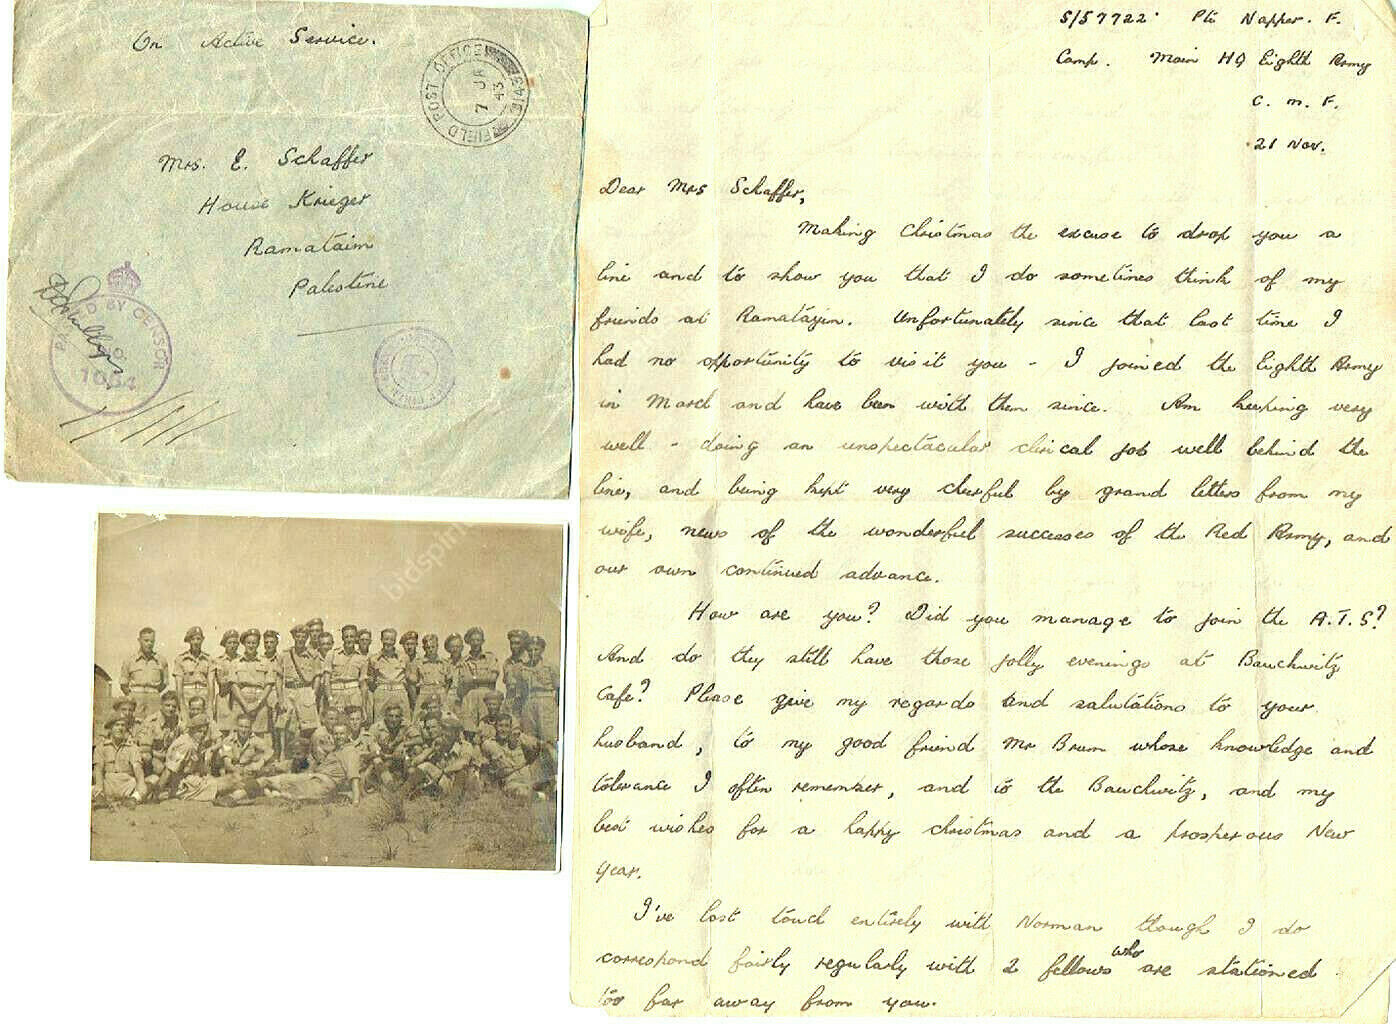 On Active Service.
FIELD POST OFFICE
7 JA
43
Mrs. E. Schaffer
House Krieger
Ramataim
Palestine
PASSED BY CENSOR
No.
1054
bidspirit
S/57722. Pte Napper. F.
Camp. Main HQ Eighth Army
C. M. F.
21 Nov.
Dear Mrs Schaffer,
Making Christmas the excuse to drop you a
line and to show you that I do sometimes think of my
friends at Ramatayim. Unfortunately since that last time I
had no opportunity to visit you - I joined the Eighth Army
in March and have been with them since. Am keeping very
well - doing an unspectacular clerical job well behind the
line, and being kept very cheerful by grand letters from my
wife, news of the wonderful successes of the Red Army, and
our own continued advance.
How are you? Did you manage to join the A.T.S?
And do they still have those jolly evenings at Bauchwitz
Cafe? Please give my regards and salutations to your
husband, to my good friend Mr Brum whose knowledge and
tolerance I often remember, and to the Bauchwitz, and my
best wishes for a happy christmas and a prosperous New
Year.
I've lost touch entirely with Norman though I do
correspond fairly regularly with 2 fellows who are stationed
too far away from you.